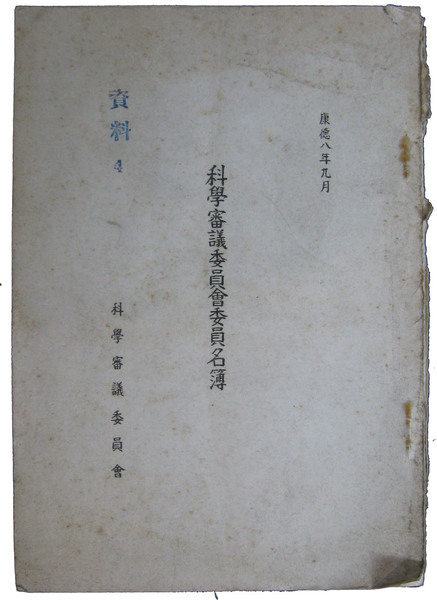 康德八年九月
科學審議委員會委員名簿
科學審議委員會
資料4